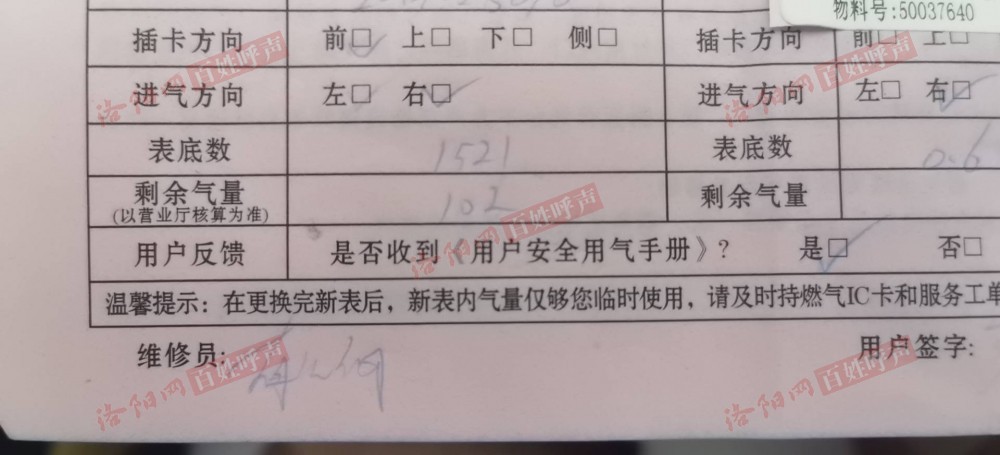 物料号:50037640
插卡方向 前□ 上□ 下□ 侧□ 插卡方向 前□ 上□
进气方向 左□ 右□ 进气方向 左□ 右□
表底数 1521 表底数 0.6
剩余气量 102 剩余气量
(以营业厅核算为准)
用户反馈 是否收到《用户安全用气手册》? 是□ 否□
温馨提示:在更换完新表后,新表内气量仅够您临时使用,请及时持燃气IC卡和服务工单
维修员: 用户签字:
洛阳网 百姓呼声
洛阳网 百姓呼声
洛阳网 百姓呼声
洛阳网 百姓呼声
洛阳网 百姓呼声